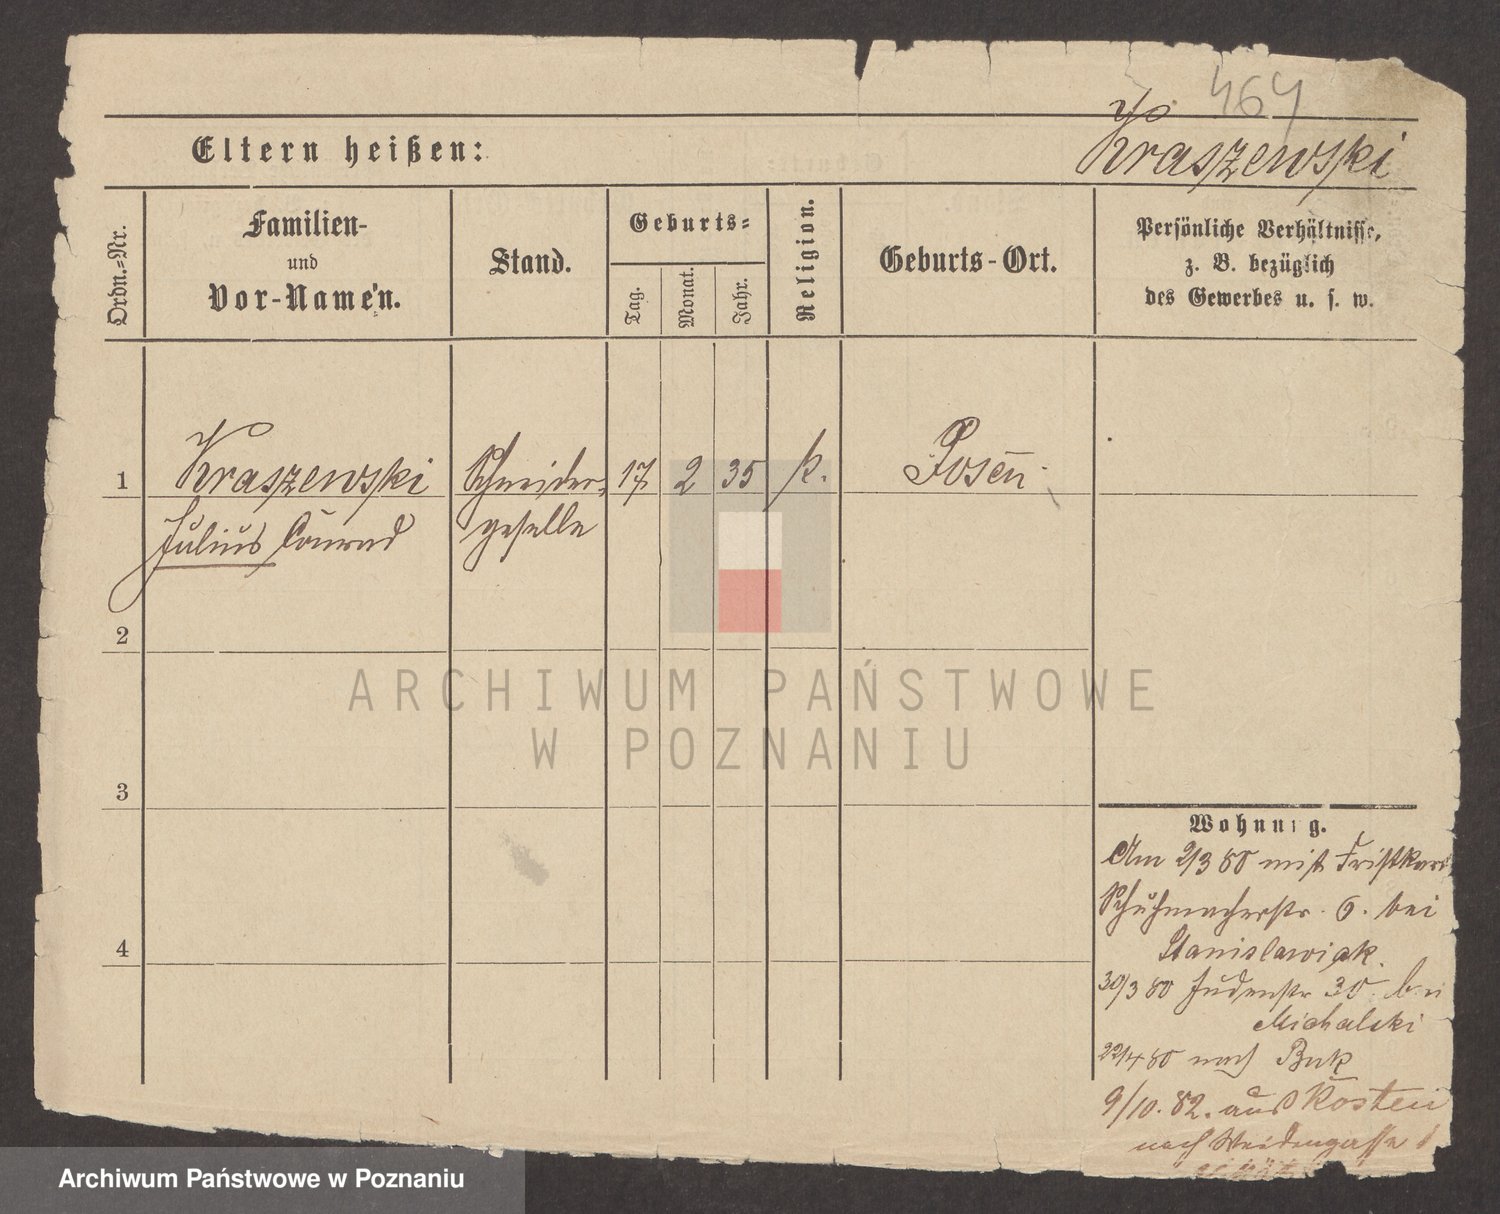 464
Eltern heißen:
Kraszewski
Ordn.=Nr.
Familien-
und
Vor-Namen.
Stand.
Geburts=
Tag.
Monat.
Jahr.
Religion.
Geburts-Ort.
Persönliche Verhältnisse,
z. B. bezüglich
des Gewerbes u. s. w.
1
Kraszewski
Julius Conrad
Schneider-
geselle
17
2
35
k.
Posen
2
3
4
Wohnung.
Am 2/3 80 mit Fristkart
Schuhmacherstr. 6. bei
Stanislawiak.
30/3 80 Judenstr 30. bei
Michalski
22/4 80 nach Buk
9/10. 82. aus Kosten
nach Weidengasse
ARCHIWUM PAŃSTWOWE
W POZNANIU
Archiwum Państwowe w Poznaniu